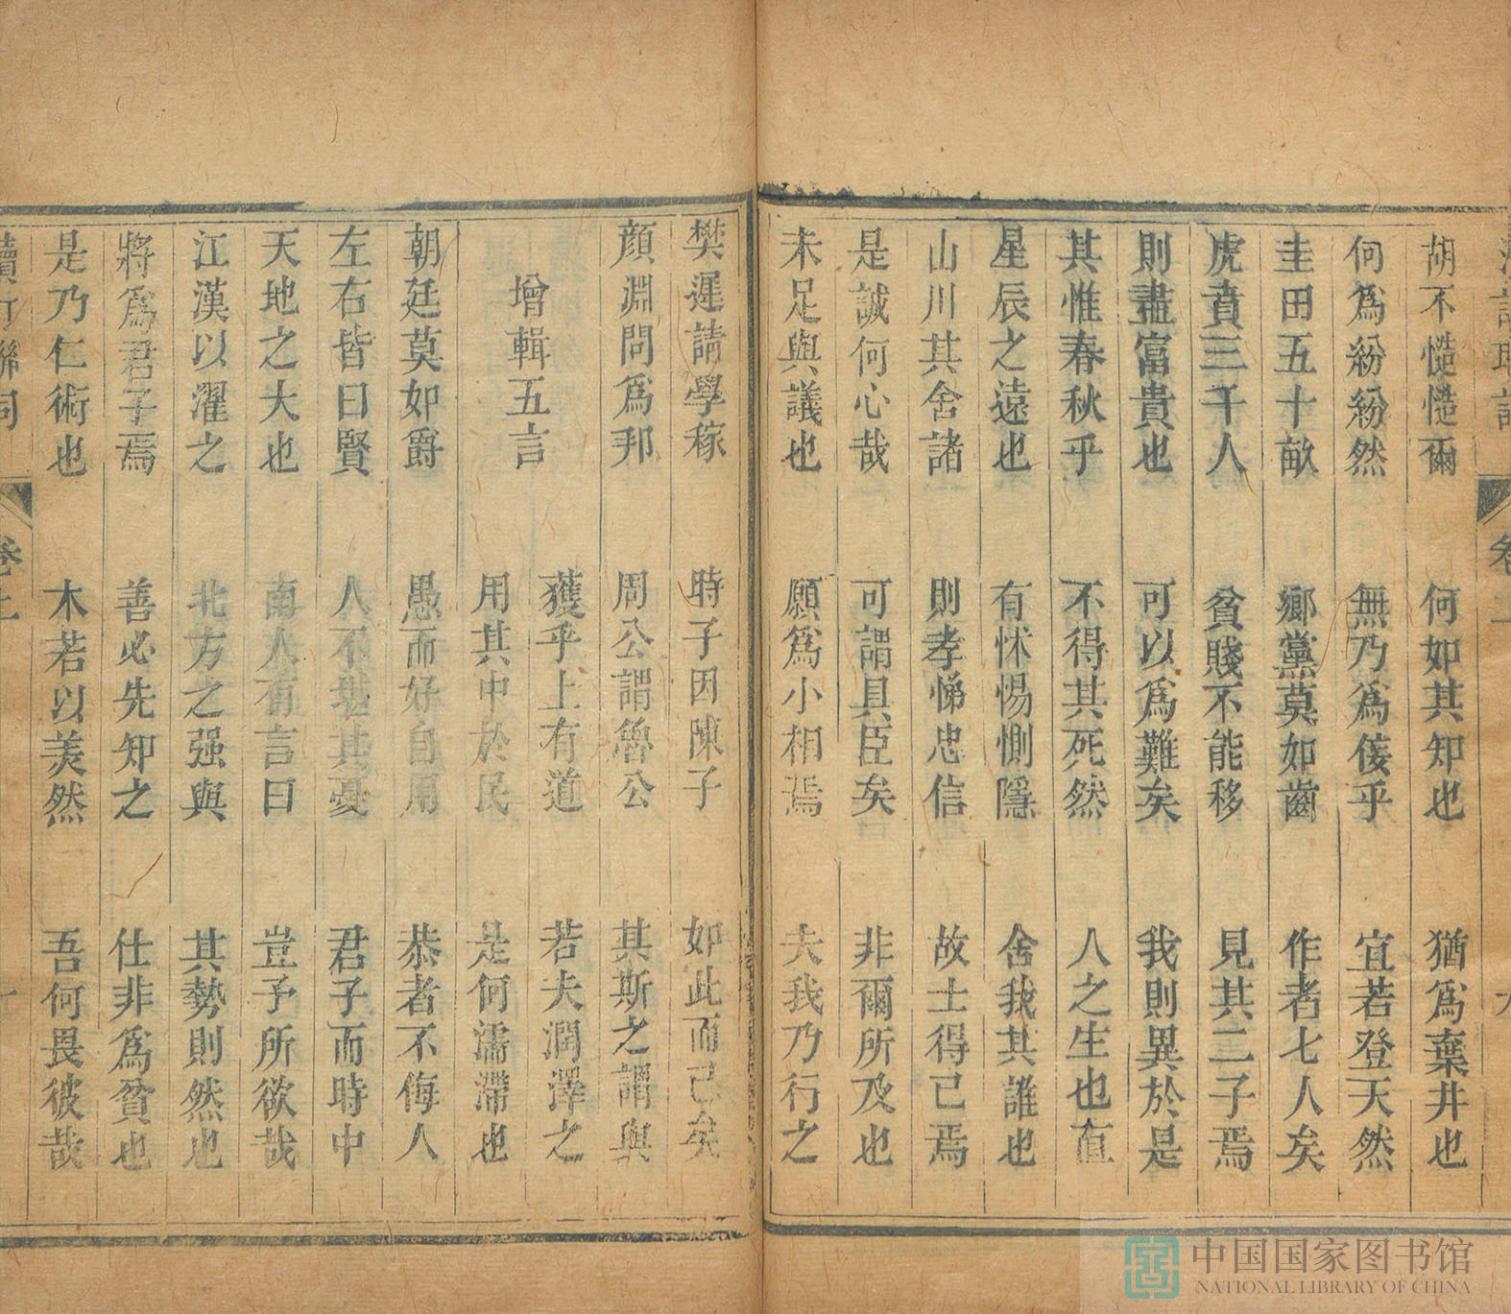 胡不慥慥爾　何如其知也　猶爲棄井也
何爲紛紛然　無乃爲佞乎　宜若登天然
圭田五十畝　鄉黨莫如齒　作者七人矣
虎賁三千人　貧賤不能移　見其二子焉
則盡富貴也　可以爲難矣　我則異於是
其惟春秋乎　不得其死然　人之生也直
星辰之遠也　有怵惕惻隱　舍我其誰也
山川其舍諸　則孝悌忠信　故士得己焉
是誠何心哉　可謂具臣矣　非爾所及也
未足與議也　願爲小相焉　夫我乃行之
樊遲請學稼　時子因陳子　如此而已矣
顔淵問爲邦　周公謂魯公　其斯之謂與
增輯五言
獲乎上有道　若夫潤澤之
用其中於民　是何濡滯也
朝廷莫如爵　愚而好自用　恭者不侮人
左右皆曰賢　人不堪其憂　君子而時中
天地之大也　南人有言曰　豈予所欲哉
江漢以濯之　北方之强與　其勢則然也
將爲君子焉　善必先知之　仕非爲貧也
是乃仁術也　木若以美然　吾何畏彼哉
卷上
中国国家图书馆
NATIONAL LIBRARY OF CHINA